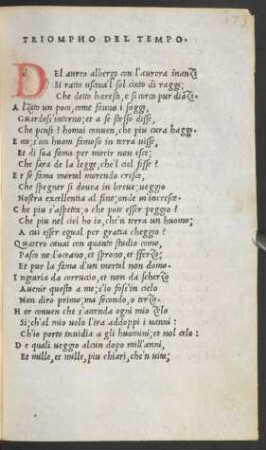 TRIOMPHO DEL TEMPO.
DEl aureo albergo con l'aurora inanzi
Si ratto usciua'l sol cinto di raggi;
Che detto haresti, e si corcò pur dianzi.
Alzato un poco, come fanno i saggi,
Guardosi intorno; et a se stesso disse,
Che pensi? homai conuen, che piu cura haggi.
Ecco; s'un huom famoso in terra uisse,
Et di sua fama per morir non esce;
Che sarà de la legge, che'l ciel fisse?
Et se fama mortal morendo cresce,
Che spegner si doueua in breue; ueggio
Nostra excellentia al fine; onde m'incresce.
Che piu s'aspetta; o che pote esser peggio?
Che piu nel ciel ho io, che'n terra un huomo;
A cui esser egual per gratia cheggio?
Quattro cauai con quanto studio como,
Pasco ne l'oceano, et sprono, et sferzo;
Et pur la fama d'un mortal non domo.
Ingiuria da corruccio, et non da scherzo
Auenir questo a me; s'io foss'in cielo
Non dirò primo, ma secondo, o terzo.
Hor conuen che s'accenda ogni mio zelo
Si; ch'al mio uolo l'ira addoppi i uanni:
Ch'io porto inuidia a gli huomini; et nol celo:
De quali ueggio alcun dopo mill'anni,
Et mille, et mille, piu chiari, che'n uita;